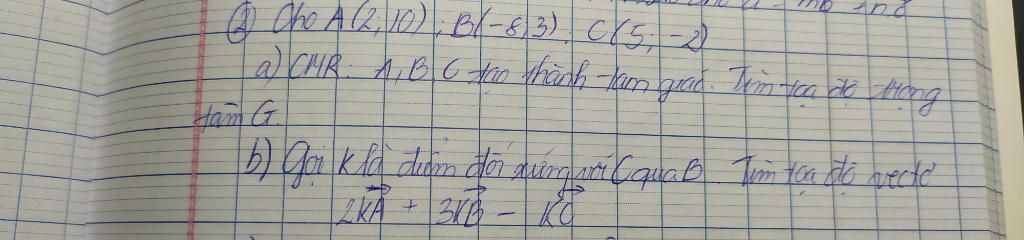 ② Cho A(2;10); B(-8;3). C(5;-2)
a) CMR: A, B, C tạo thành tam giác. Tìm tọa độ trọng
tâm G.
b) Gọi K là điểm đối xứng với C qua B. Tìm tọa độ vectơ
2KA + 3KB - KC